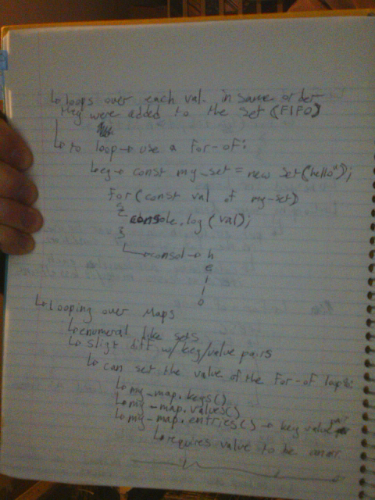 ↳ loops over each val. in same order
they were added to the set (FIFO)
↳ to loop → use a for-of:
↳ eg → const my_set = new Set("hello");
for (const val of my-set)
{ console.log(val);
}
↳ consol → h
e
l
o
↳ Looping over Maps
↳ enumeral like sets
↳ sligt diff w/ key/value pairs
↳ can set the value of the for-of loop to:
↳ my_map.keys()
↳ my_map.values()
↳ my_map.entries() → key value
↳ requires value to be an